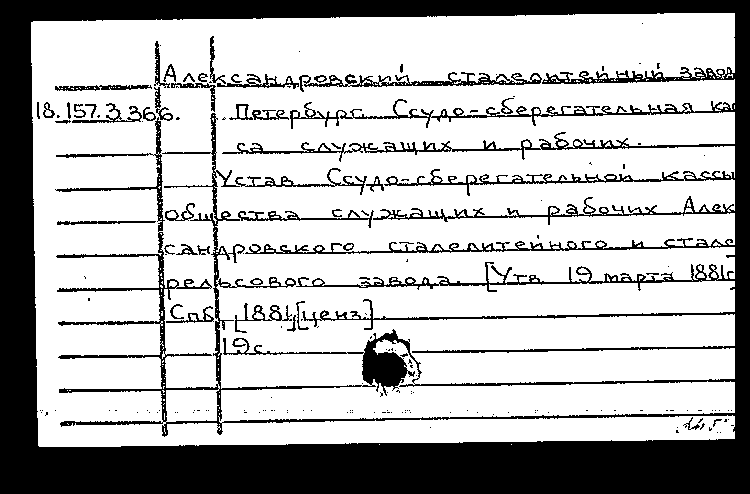 Александровский сталелитейный завод
18.157.3.366. Петербург. Ссудо-сберегательная кас
са служащих и рабочих.
Устав Ссудо-сберегательной кассы
общества служащих и рабочих Алек
сандровского сталелитейного и стале
рельсового завода. [Утв. 19 марта 1881г
Спб., [1881][ценз.].
19 с.